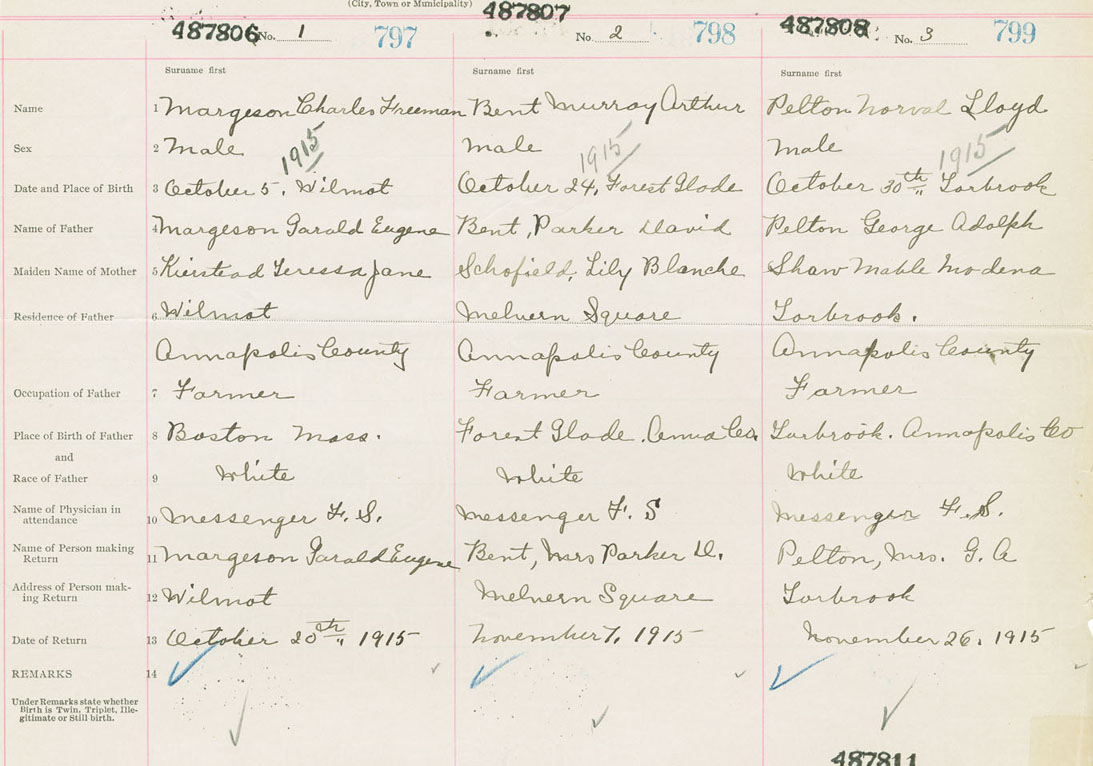 (City, Town or Municipality)
487806 No. 1 797 487807 No. 2 798 487808 No. 3 799
Suruame first Surname first Surname first
Name 1 Margeson Charles Freeman Bent Murray Arthur Pelton Norval Lloyd
1915 1915 1915
Sex 2 Male Male Male
Date and Place of Birth 3 October 5. Wilmot October 24, Forest Glade October 30th Torbrook
Name of Father 4 Margeson Garald Eugene Bent, Parker David Pelton George Adolph
Maiden Name of Mother 5 Kierstead Teressa Jane Schofield, Lily Blanche Shaw Mable Modena
Residence of Father 6 Wilmot Melvern Square Torbrook.
Annapolis County Annapolis County Annapolis County
Occupation of Father 7 Farmer Farmer Farmer
Place of Birth of Father 8 Boston Mass. Forest Glade. Anna Co. Torbrook. Annapolis Co
and
Race of Father 9 White White White
Name of Physician in
attendance 10 Messenger F. S. Messenger F. S Messenger F. S.
Name of Person making
Return 11 Margeson Garald Eugene Bent, Mrs Parker D. Pelton, Mrs. G. A
Address of Person mak-
ing Return 12 Wilmot Melvern Square Torbrook
Date of Return 13 October 20th 1915 November 7, 1915 November 26. 1915
REMARKS 14
Under Remarks state whether
Birth is Twin, Triplet, Ille-
gitimate or Still birth.
487811